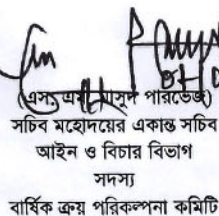 (এস, এম, মাসুদ পারভেজ)
সচিব মহোদয়ের একান্ত সচিব
আইন ও বিচার বিভাগ
সদস্য
বার্ষিক ক্রয় পরিকল্পনা কমিটি